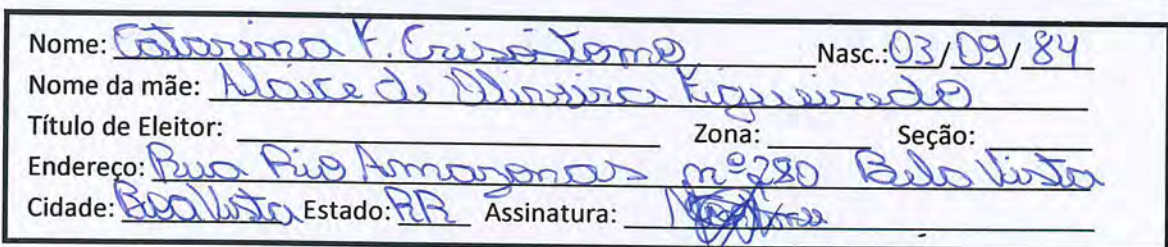 Nome: Catarina F. Crisóstomo Nasc.: 03/09/84
Nome da mãe: de Oliveira Figueiredo
Título de Eleitor: Zona: Seção:
Endereço: Rua Rio Amazonas nº 280 Bela Vista
Cidade: Boa Vista Estado: RR Assinatura: